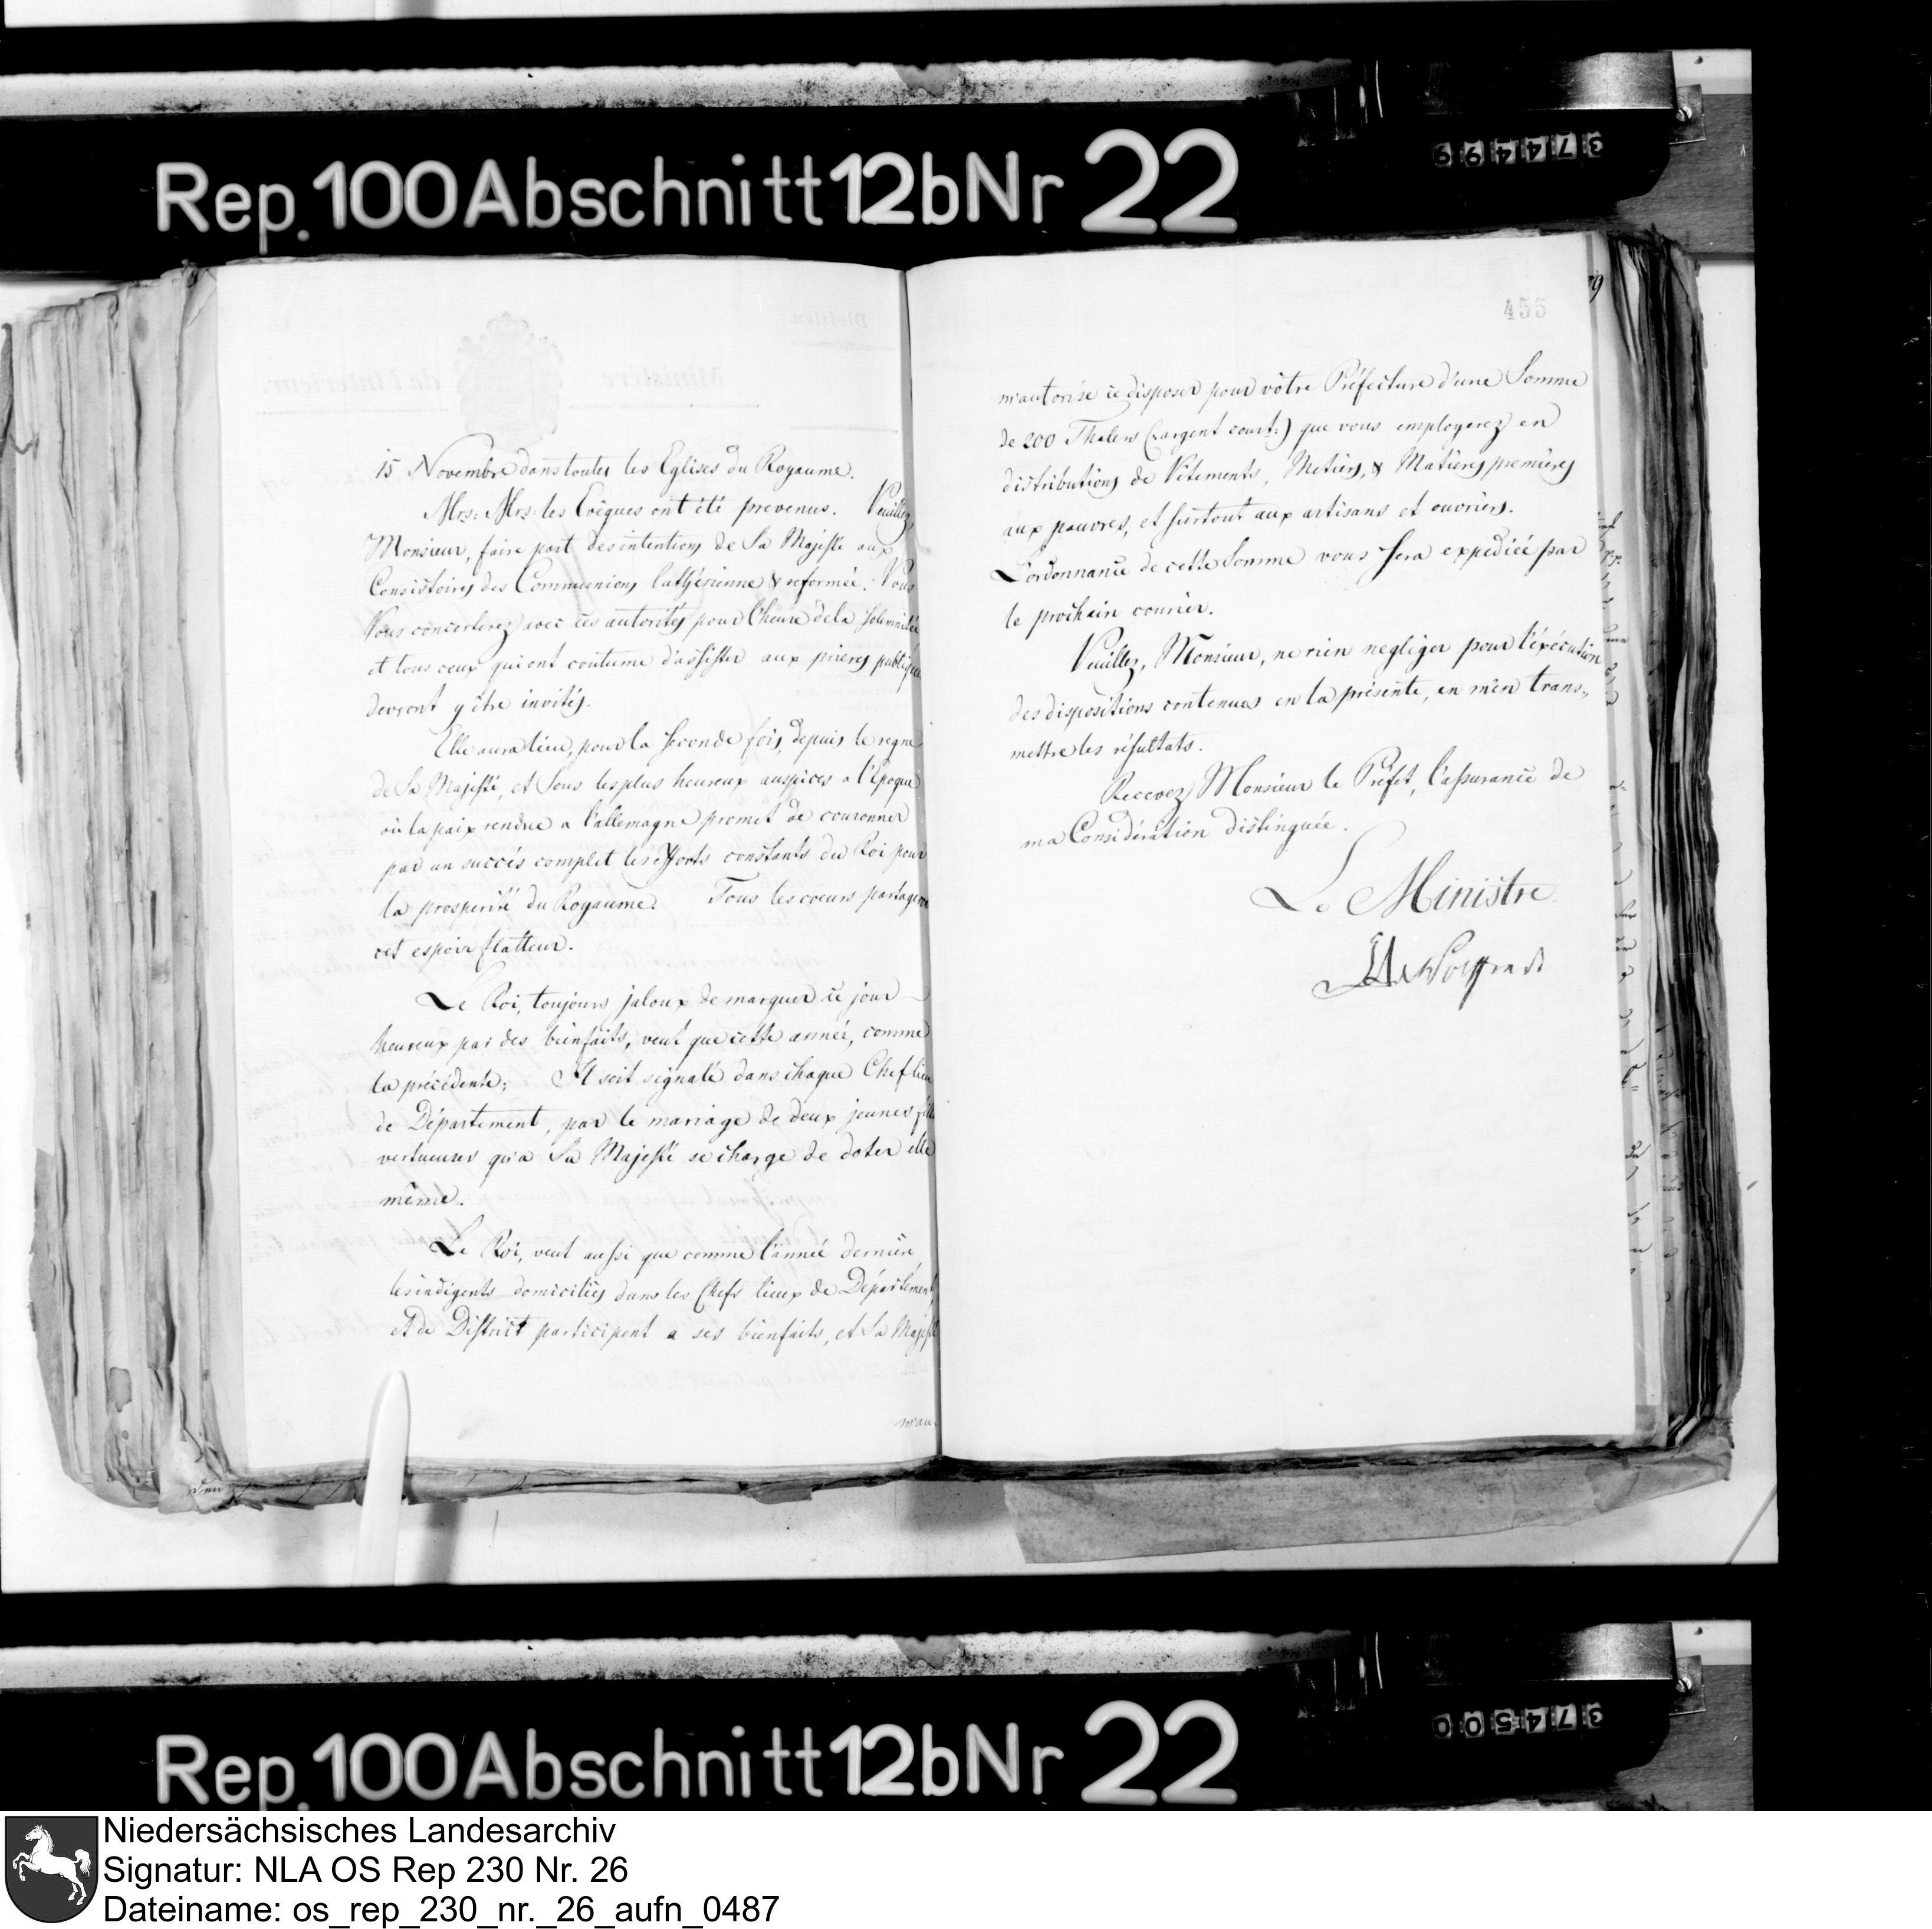 Rep. 100 Abschnitt 12b Nr 22
374499
15 Novembre dans toutes les Eglises du Royaume.
Mrs: Mrs: les Evêques ont été prevenus. Veuillez
Monsieur, faire part des intentions de Sa Majesté aux
Consistoires des Communions luthérienne & reformée: Vous
Vous concerterez avec ces autorités pour l'heure de la solemnité
et tous ceux qui ont coutume d'assister aux prieres publiques
devront y être invités.
Elle aura lieu, pour la seconde fois, depuis le regne
de Sa Majesté, et sous les plus heureux auspices a l'Epoque
où la paix rendue a l'allemagne promet de couronner
par un succés complet les efforts constants du Roi pour
la prosperité du Royaume. Tous les coeurs partageront
cet espoir flatteur.
Le Roi, toujours jaloux de marquer ce jour
heureux par des bienfaits, veut que cette année, comme
la précédente; Il soit signalé dans chaque Chef lieu
de Département, par le mariage de deux jeunes filles
vertueuses qu'a Sa Majesté se charge de doter elle
même.
Le Roi, veut aussi que comme l'année derniere
les indigents domiciliés dans les Chefs lieux de Département,
et de District participent a ses bienfaits, et Sa Majesté
m'au
455
m'autorise à disposer pour vôtre Préfecture d'une Somme
de 200 Thalers (argent court:) que vous employerez en
distributions de Vêtements, Metiers, & Matieres premieres
aux pauvres, et surtout aux artisans et ouvriers.
L'ordonnance de cette Somme vous sera expediée par
le prochain courier.
Veuillez, Monsieur, ne rien negliger pour l'éxécution
des dispositions contenues en la présente, en m'en trans-
mettre les résultats.
Recevez Monsieur le Préfet, l'assurance de
ma Considération distinguée.
Le Ministre
Rep. 100 Abschnitt 12b Nr 22
374500
Niedersächsisches Landesarchiv
Signatur: NLA OS Rep 230 Nr. 26
Dateiname: os_rep_230_nr._26_aufn_0487